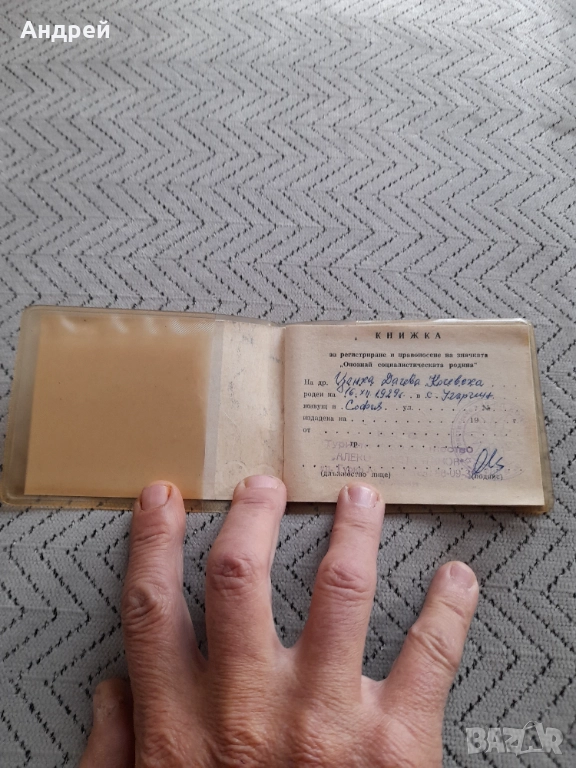 Андрей
КНИЖКА
за регистриране и правоносене на значката
„Опознай социалистическата родина“
На др. Ценка Дачева
роден на 16.XII.1929 г. в с. Угърчин
живущ в София ул. №
издадена на 19 г.
от
гр.
(длъжностно лице) (подпис)
BAZAR